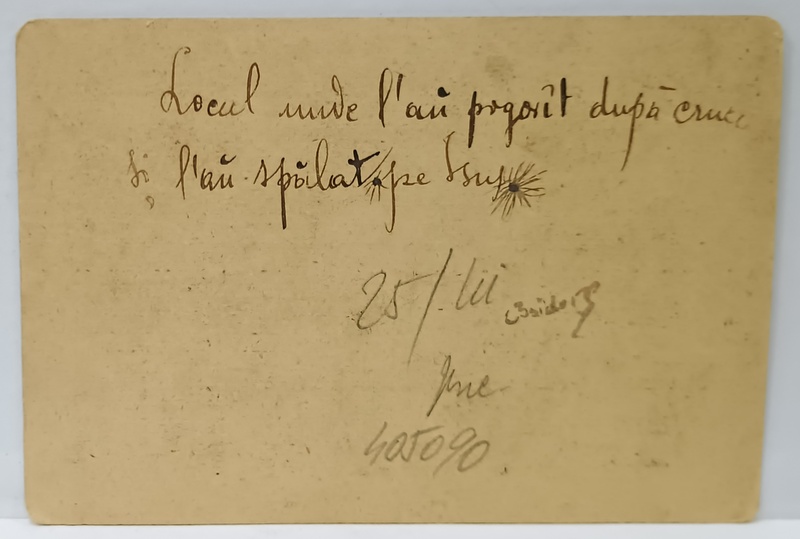 Locul unde l'aŭ pogorît după cruce
și l'aŭ spălat pe Isus
25/III
405090